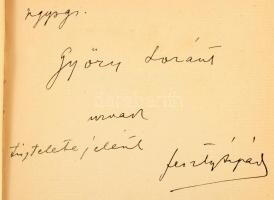 nagys.
Győry Loránt
urnak
tisztelete jeléül
Feszty Árpád